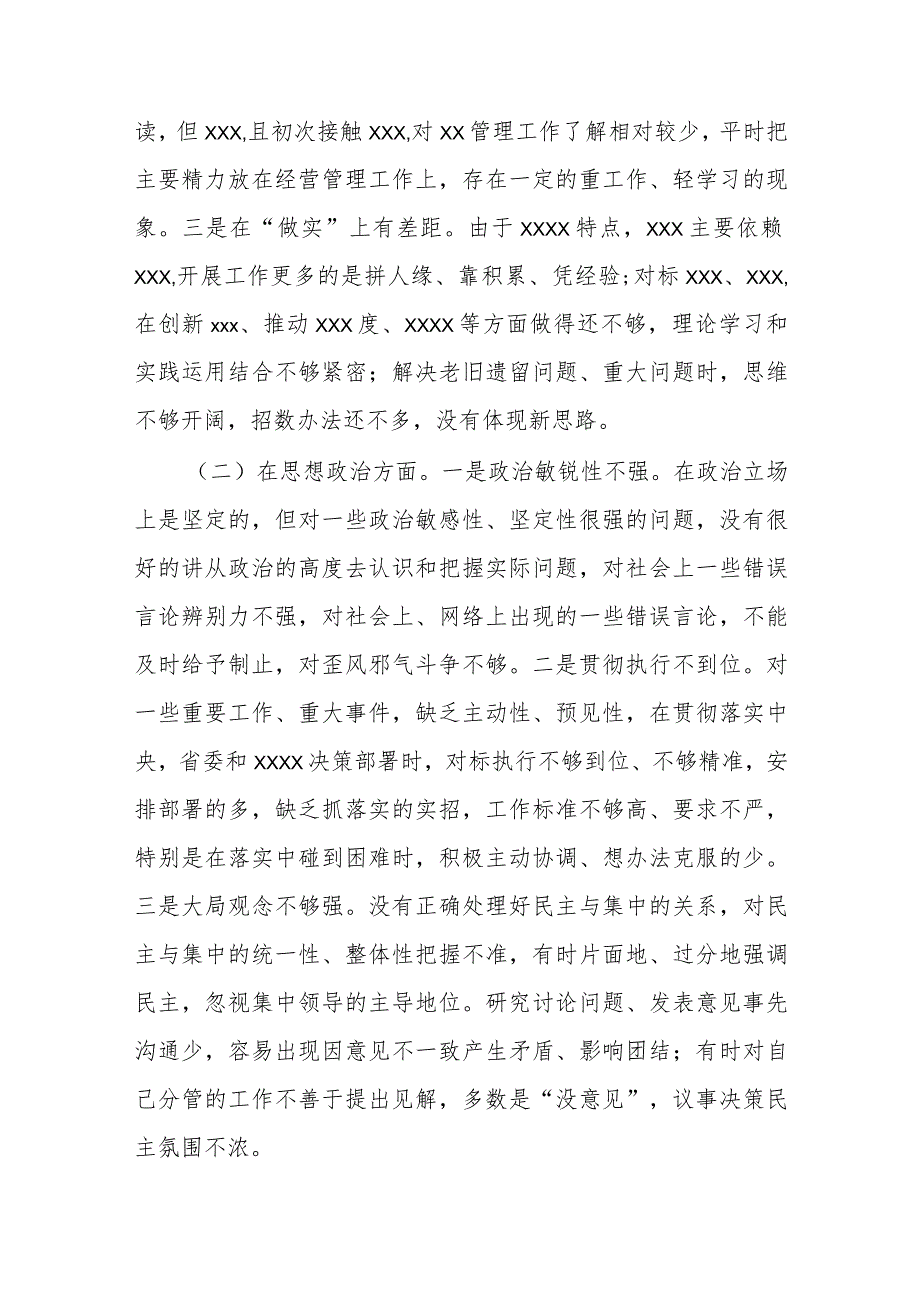 读，但 XXX,且初次接触 XXX,对 XX 管理工作了解相对较少，平时把
主要精力放在经营管理工作上，存在一定的重工作、轻学习的现
象。三是在“做实”上有差距。由于 XXXX 特点，XXX 主要依赖
XXX,开展工作更多的是拼人缘、靠积累、凭经验;对标 XXX、XXX,
在创新 xxx、推动 XXX 度、XXXX 等方面做得还不够，理论学习和
实践运用结合不够紧密；解决老旧遗留问题、重大问题时，思维
不够开阔，招数办法还不多，没有体现新思路。
（二）在思想政治方面。一是政治敏锐性不强。在政治立场
上是坚定的，但对一些政治敏感性、坚定性很强的问题，没有很
好的讲从政治的高度去认识和把握实际问题，对社会上一些错误
言论辨别力不强，对社会上、网络上出现的一些错误言论，不能
及时给予制止，对歪风邪气斗争不够。二是贯彻执行不到位。对
一些重要工作、重大事件，缺乏主动性、预见性，在贯彻落实中
央，省委和 XXXX 决策部署时，对标执行不够到位、不够精准，安
排部署的多，缺乏抓落实的实招，工作标准不够高、要求不严，
特别是在落实中碰到困难时，积极主动协调、想办法克服的少。
三是大局观念不够强。没有正确处理好民主与集中的关系，对民
主与集中的统一性、整体性把握不准，有时片面地、过分地强调
民主，忽视集中领导的主导地位。研究讨论问题、发表意见事先
沟通少，容易出现因意见不一致产生矛盾、影响团结；有时对自
己分管的工作不善于提出见解，多数是“没意见”，议事决策民
主氛围不浓。